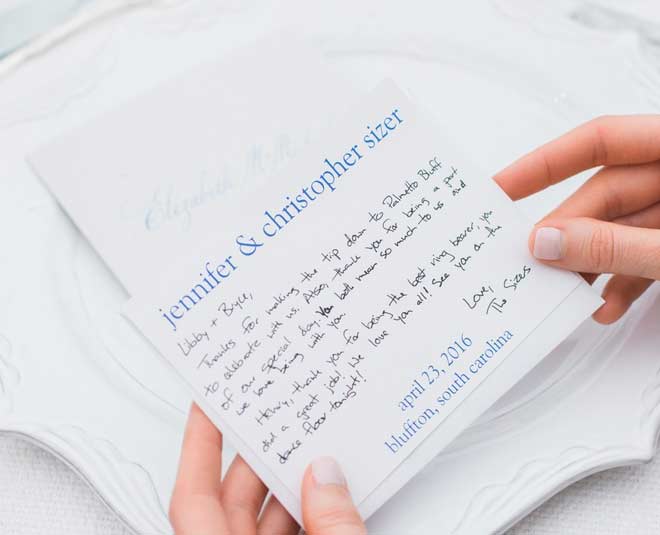 Elizabeth M.
jennifer & christopher sizer
Libby + Bryce,
Thanks for making the trip down to Palmetto Bluff
to celebrate with us. Also, thank you for being a part
of our special day. You both mean so much to us and
we love being with you.
Henry, thank you for being the best ring bearer, you
did a great job! We love you all! See you on the
dance floor tonight!
Love,
The Sizers
april 23, 2016
bluffton, south carolina